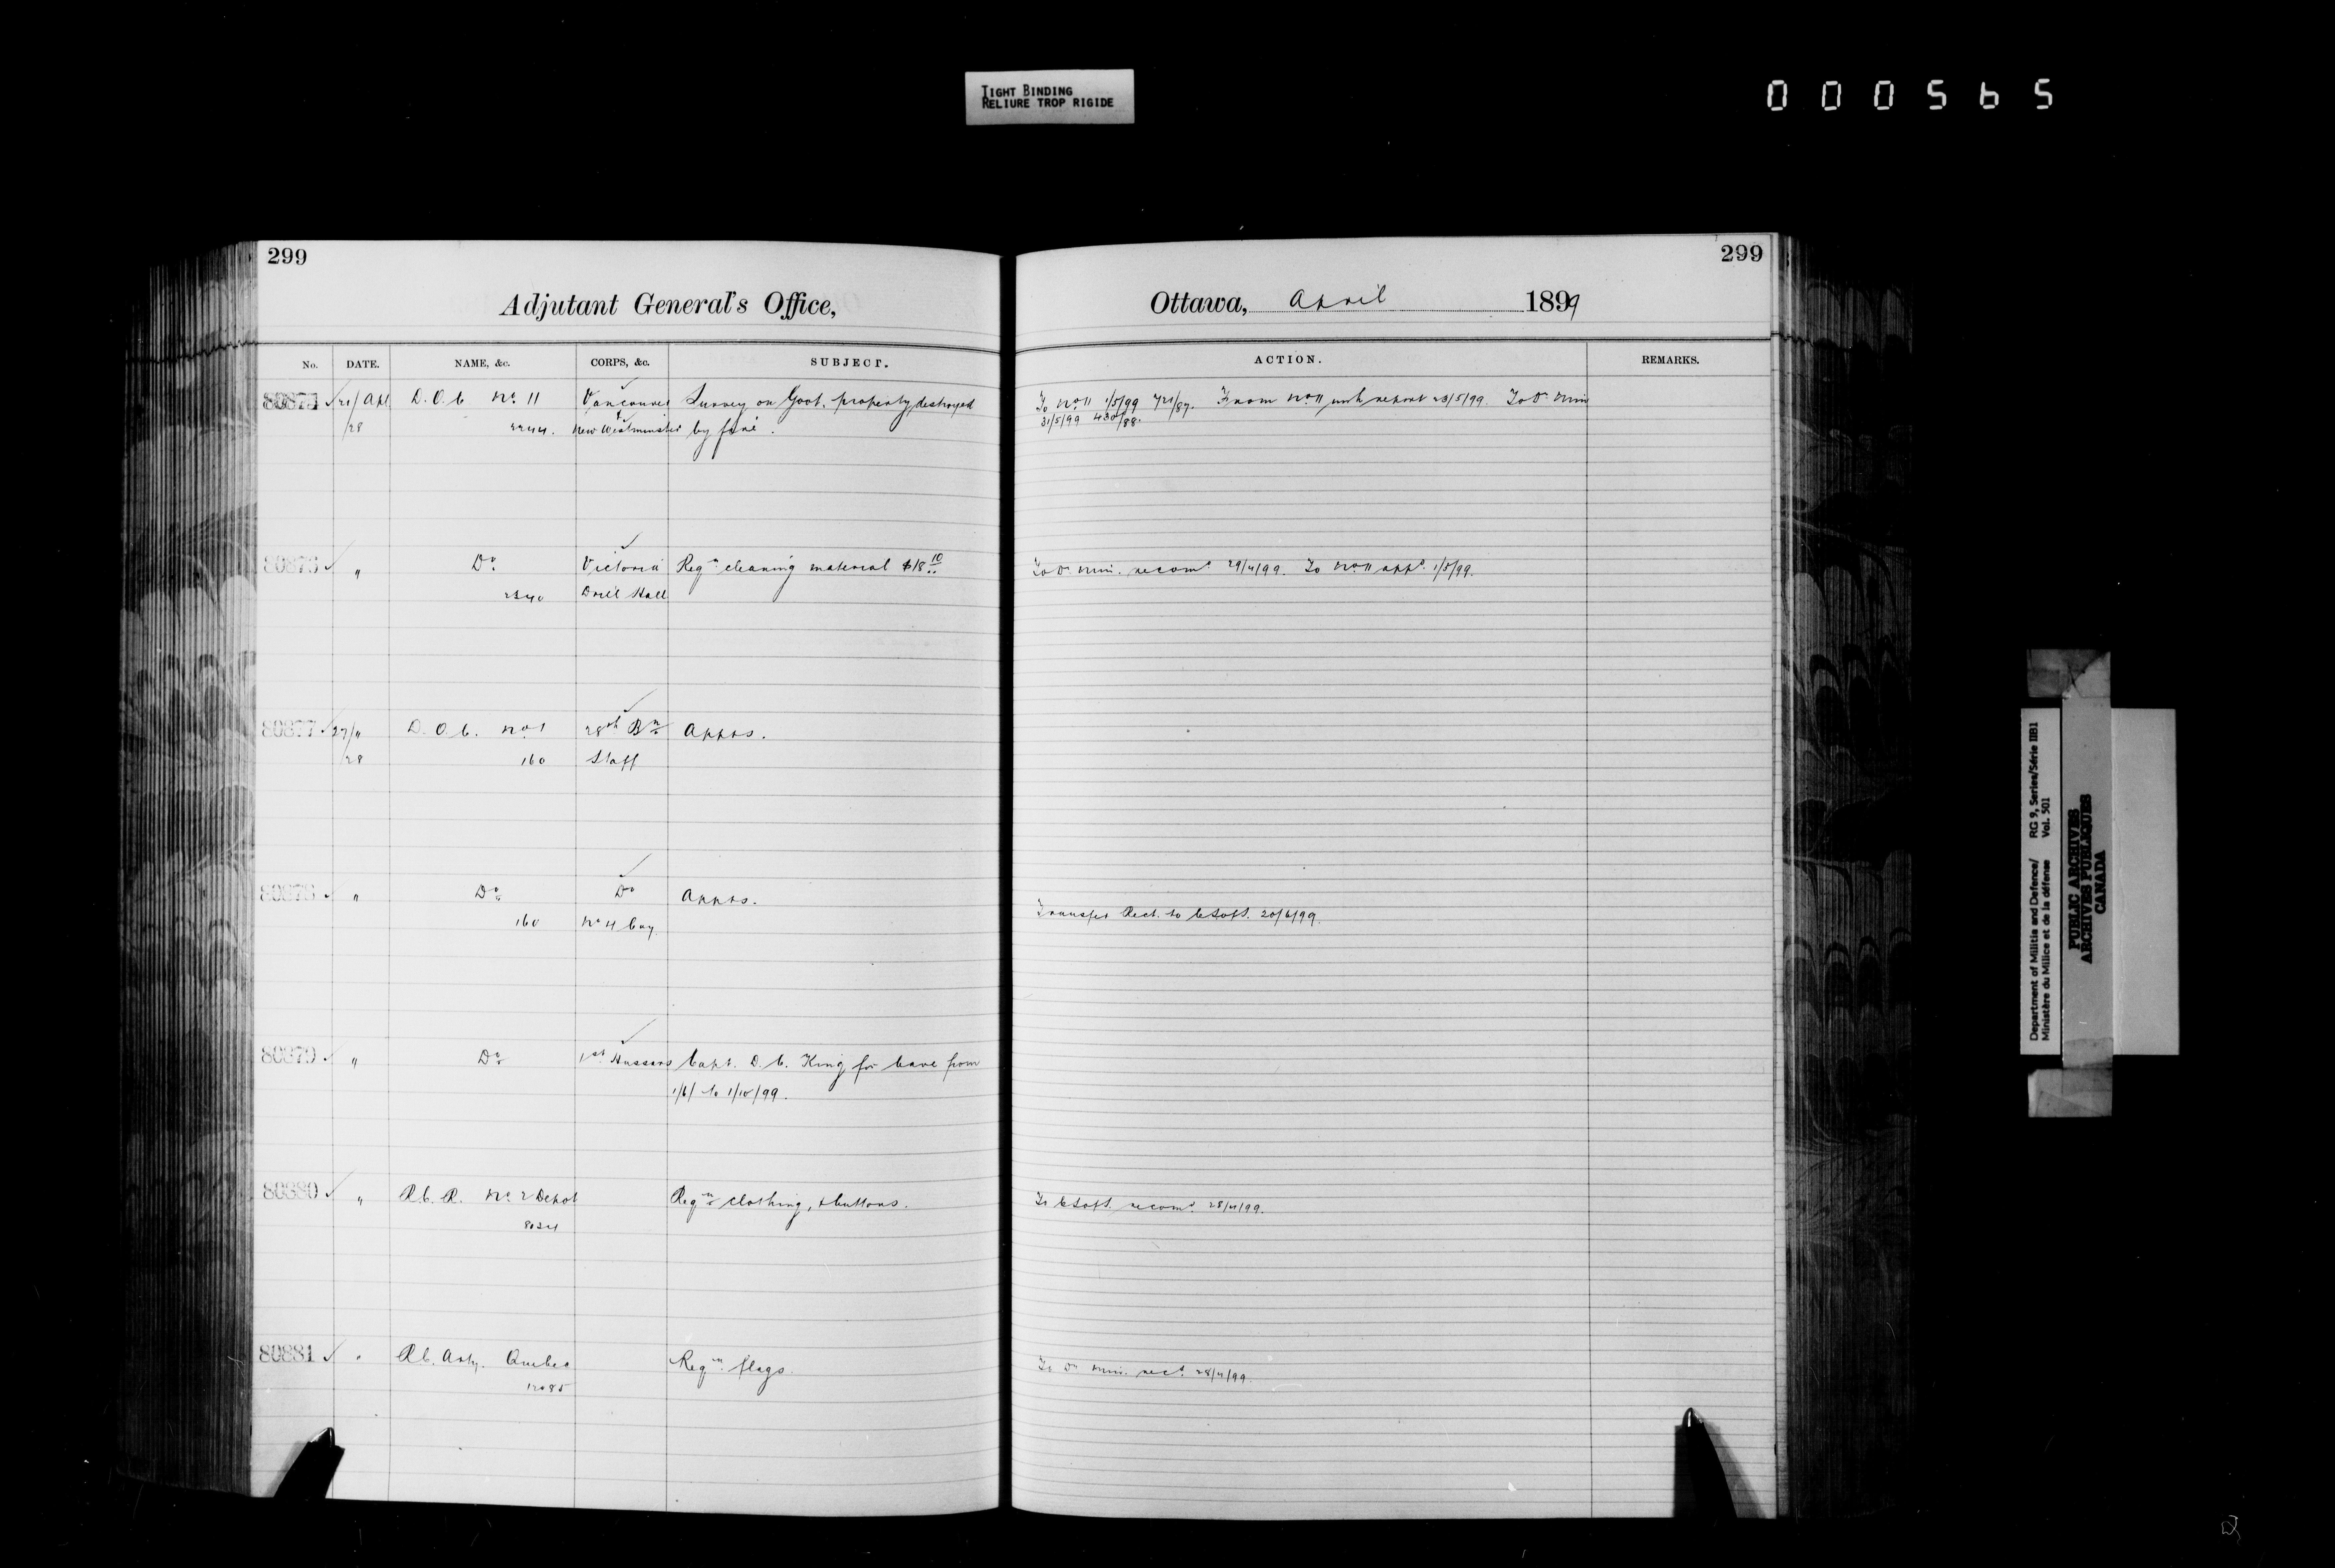 TIGHT BINDING
RELIURE TROP RIGIDE
000565
299
299
Adjutant General's Office,
Ottawa, April 1899
No. DATE. NAME, &c. CORPS, &c. SUBJECT.
ACTION. REMARKS.
21/Apl D.O.C No. 11 Vancouver Survey on Govt. property destroyed
/28 2244. & New Westminster by fire.
To No. 11 1/5/99 721/87. From No. 11 with report 23/5/99. To D. Min
31/5/99 430/88.
80876 " Do. Victoria Reqn. cleaning material $18 10
2340 Drill Hall
To D. Min. recomd. 29/4/99. To No. 11 appd. 1/5/99.
80877 27/" D.O.C. No. 1 28th Bn. Appts.
/28 160 Staff
80878 " Do. Do Appts.
160 No 4 Coy.
Transfer Rect. to C. Supt. 20/6/99.
80879 " Do. 1st Hussars Capt. D.C. King for leave from
1/6/ to 1/10/99.
80880 " R.C.R. No. 2 Depot Reqn. clothing, & buttons.
8024
To C. Supt. recomd. 28/4/99.
80881 " R.C. Arty. Quebec Reqn. flags.
12085
To D. Min. recd. 28/4/99.
Department of Militia and Defence/ RG 9, Series/Série IIB1
Ministère du Milice et de la défense Vol. 501
PUBLIC ARCHIVES
ARCHIVES PUBLIQUES
CANADA